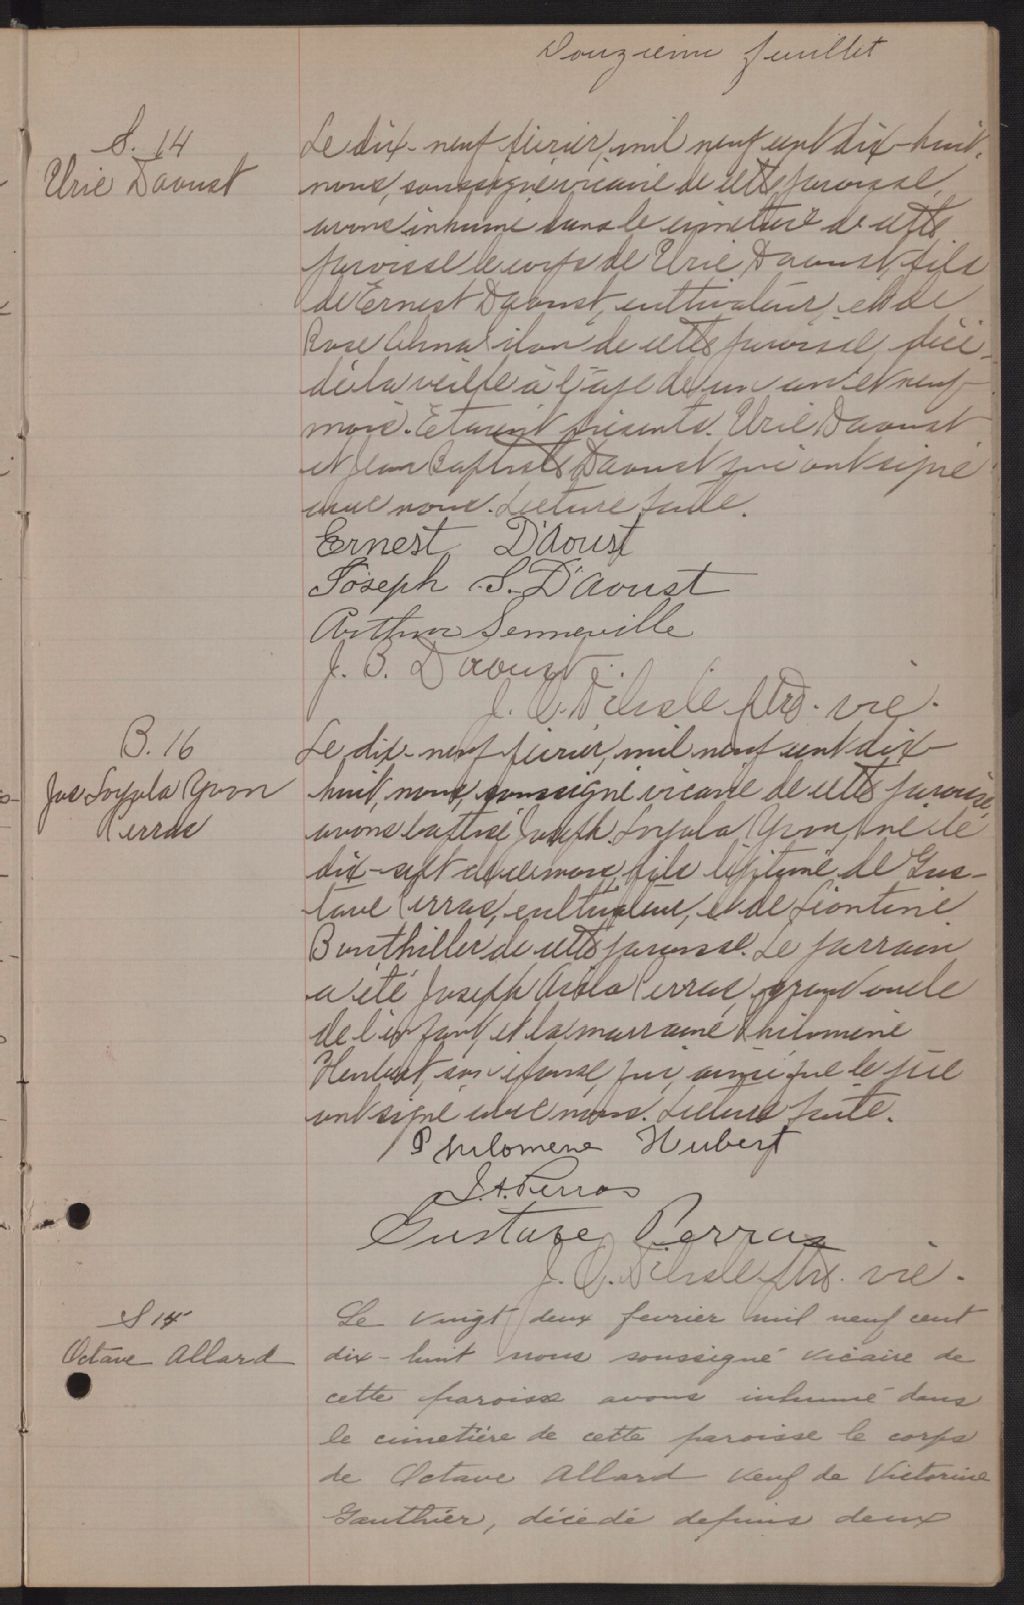 Douzième feuillet
S. 14
Urie Daoust
Le dix-neuf février, mil neuf cent dix-huit,
nous, soussigné vicaire de cette paroisse,
avons inhumé dans le cimetière de cette
paroisse le corps de Urie Daoust, fils
de Ernest Daoust, cultivateur, et de
Rose Alma de cette paroisse, décé-
dé la veille à l'âge de un an et neuf
mois. Étaient présents. Urie Daoust
et Jean Baptiste Daoust qui ont signé
avec nous. Lecture faite.
Ernest D'Aoust
Joseph S. D'Aoust
Arthur Senneville
J. B. Daoust
J. Delisle ptre. vic.
B. 16
Jos Loyola Yvon
Perras
Le dix-neuf février, mil neuf cent dix-
huit, nous, soussigné vicaire de cette paroisse,
avons baptisé Joseph Loyola Yvon, né le
dix-sept de ce mois, fils légitime de Gus-
tave Perras, cultivateur, et de Léontine
Bouthiller de cette paroisse. Le parrain
a été Joseph Perras, grand oncle
de l'enfant, et la marraine Philomène
Hubert, son épouse, qui, ainsi que le père
ont signé avec nous. Lecture faite.
Philomene Hubert
J. A. Perras
Gustave Perras
J. Delisle ptre. vic.
S 15
Octave Allard
Le vingt deux fevrier mil neuf cent
dix-huit nous soussigné vicaire de
cette paroisse avons inhumé dans
le cimetière de cette paroisse le corps
de Octave Allard veuf de Victorine
Gauthier, décédé depuis deux